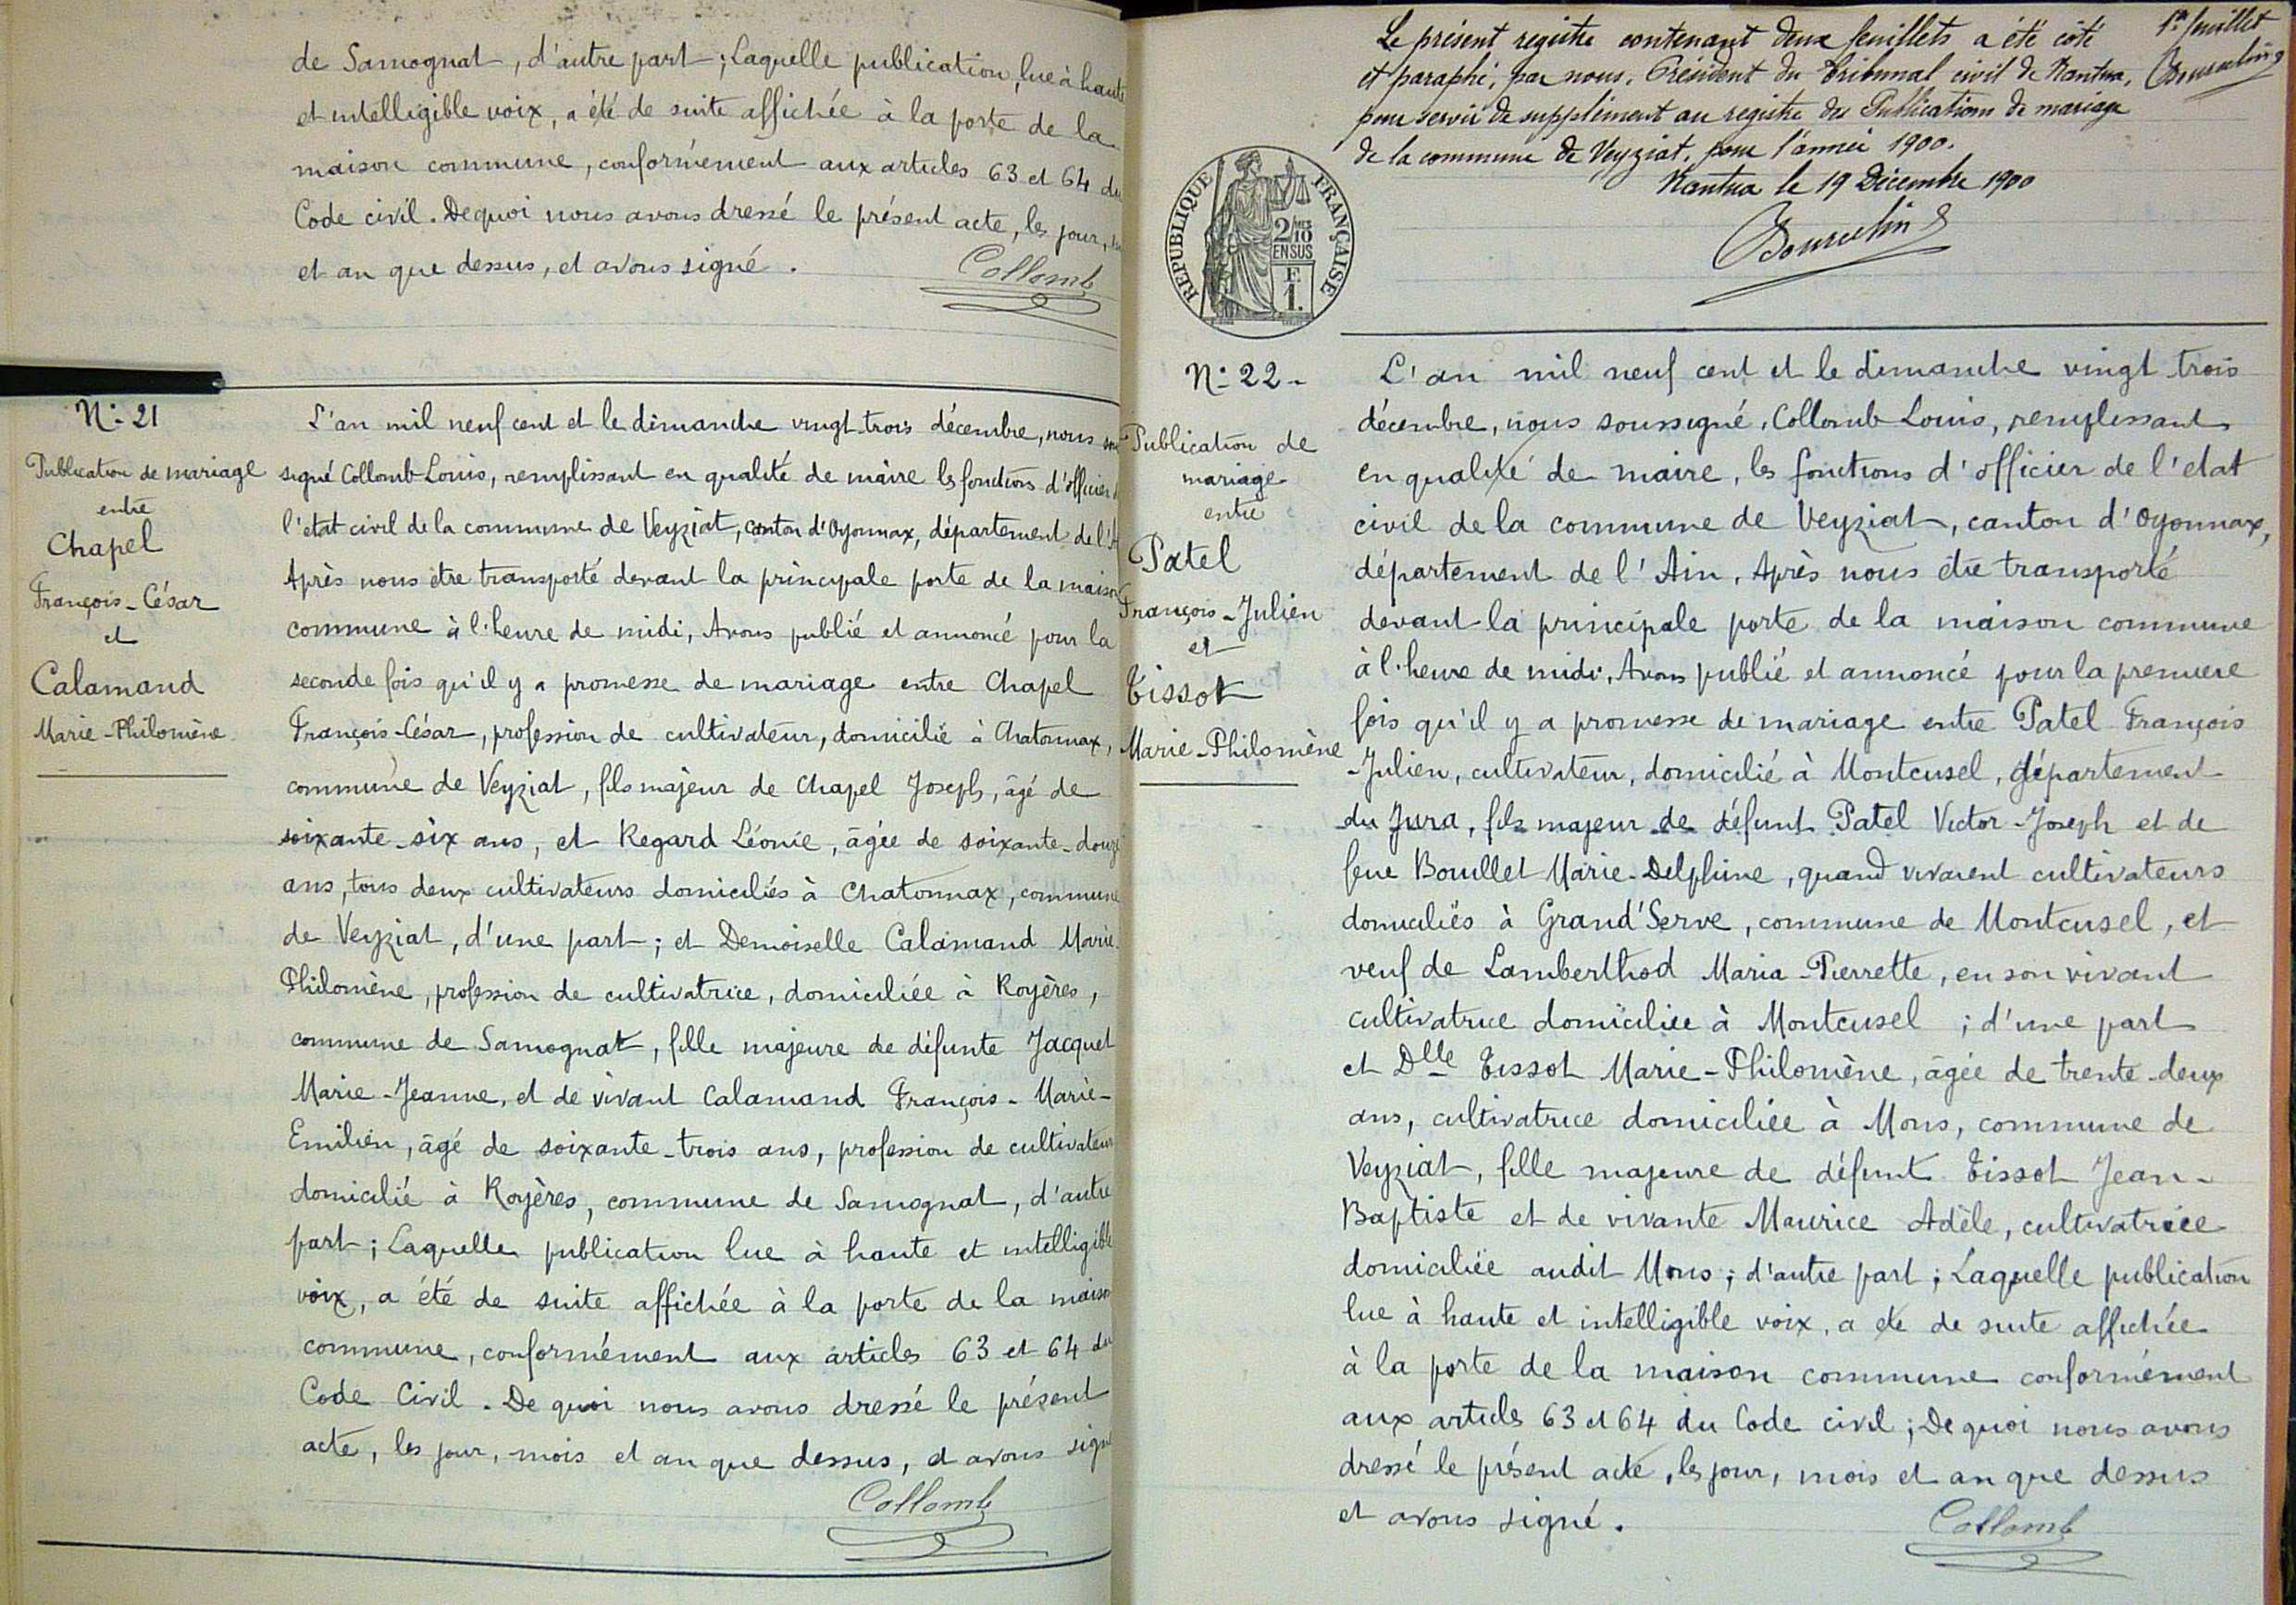 de Samognat, d'autre part ; Laquelle publication, lue à haute
et intelligible voix, a été de suite affichée à la porte de la
maison commune, conformément aux articles 63 et 64 du
Code civil. De quoi nous avons dressé le présent acte, les jour,
et an que dessus, et avons signé.
Collomb
N° 21
Publication de mariage
entre
Chapel
François-César
et
Calamand
Marie-Philomène
L'an mil neuf cent et le dimanche vingt-trois décembre, nous sous
signé Collomb Louis, remplissant en qualité de maire les fonctions d'officier de
l'etat civil de la commune de Veyziat, canton d'Oyonnax, département de l'A
Après nous être transporté devant la principale porte de la maison
commune à l'heure de midi, Avons publié et annoncé pour la
seconde fois qu'il y a promesse de mariage entre Chapel
François-César, profession de cultivateur, domicilié à Chatonnax,
commune de Veyziat, fils majeur de Chapel Joseph, âgé de
soixante-six ans, et Regard Léonie, âgée de soixante-douze
ans, tous deux cultivateurs domiciliés à Chatonnax, commune
de Veyziat, d'une part ; et Demoiselle Calamand Marie
Philomène, profession de cultivatrice, domiciliée à Royères,
commune de Samognat, fille majeure de défunte Jacquet
Marie-Jeanne, et de vivant Calamand François-Marie-
Emilien, âgé de soixante-trois ans, profession de cultivateur
domicilié à Royères, commune de Samognat, d'autre
part ; Laquelle publication lue à haute et intelligible
voix, a été de suite affichée à la porte de la maison
commune, conformément aux articles 63 et 64 du
Code Civil. De quoi nous avons dressé le présent
acte, les jour, mois et an que dessus, et avons signé
Collomb
Le présent registre contenant deux feuillets a été coté
et paraphé, par nous, Président du Tribunal civil de Nantua,
pour servir de supplément au registre des Publications de mariage
de la commune de Veyziat, pour l'année 1900.
Nantua le 19 Décembre 1900
1er feuillet
RÉPUBLIQUE FRANÇAISE
2/10
EN SUS
E
1.
N° 22
Publication de
mariage
entre
Patel
François-Julien
et
Tissot
Marie-Philomène
L'an mil neuf cent et le dimanche vingt trois
décembre, nous soussigné, Collomb Louis, remplissant
en qualité de maire, les fonctions d'officier de l'etat
civil de la commune de Veyziat, canton d'Oyonnax,
département de l'Ain, Après nous être transporté
devant la principale porte de la maison commune
à l'heure de midi, Avons publié et annoncé pour la premiere
fois qu'il y a promesse de mariage entre Patel François
-Julien, cultivateur, domicilié à Montcusel, département
du Jura, fils majeur de défunt Patel Victor-Joseph et de
feue Bouillet Marie-Delphine, quand vivaient cultivateurs
domiciliés à Grand'Serve, commune de Montcusel, et
veuf de Lamberthod Maria-Pierrette, en son vivant
cultivatrice domiciliée à Montcusel ; d'une part
et Dlle Tissot Marie-Philomène, âgée de trente-deux
ans, cultivatrice domiciliée à Mons, commune de
Veyziat, fille majeure de défunt Tissot Jean-
Baptiste et de vivante Maurice Adèle, cultivatrice
domiciliée audit Mons ; d'autre part ; Laquelle publication
lue à haute et intelligible voix, a été de suite affichée
à la porte de la maison commune conformément
aux articles 63 et 64 du Code civil ; De quoi nous avons
dressé le présent acte, les jour, mois et an que dessus
et avons signé.
Collomb